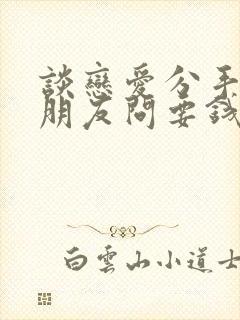 談戀愛分手
朋友問要錢
白雲山小道士